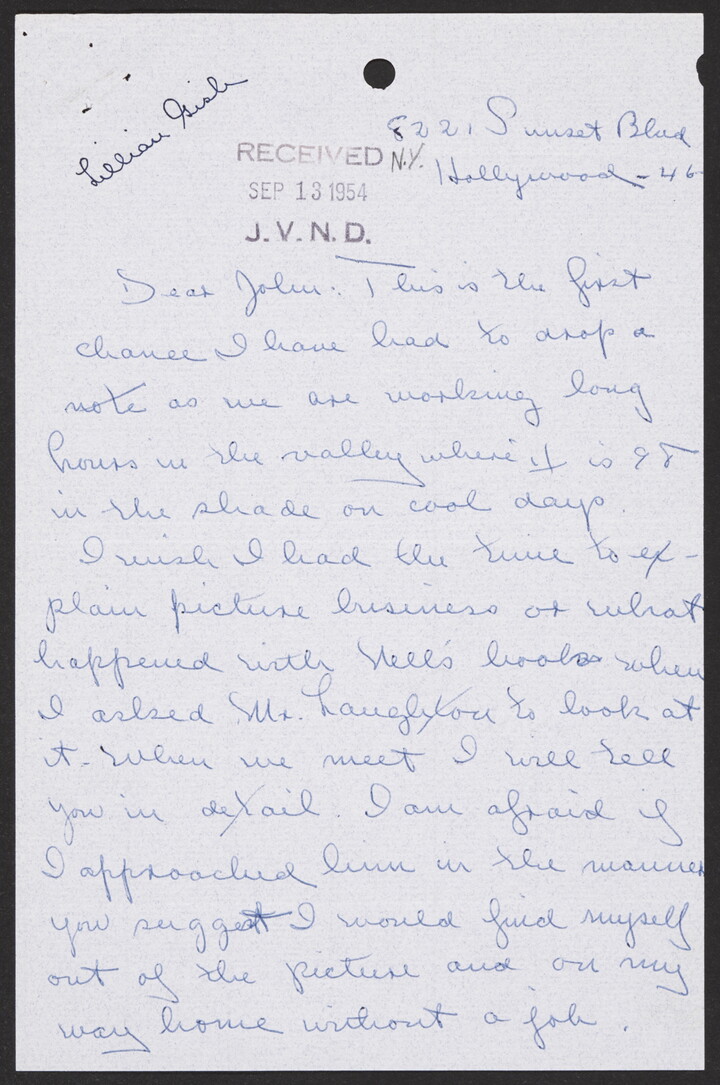 Lillian Gish
8221 Sunset Blvd
RECEIVED N.Y.
Hollywood - 46
SEP 13 1954
J. V. N. D.
Dear John: This is the first
chance I have had to drop a
note as we are working long
hours in the valley where it is 98
in the shade on cool days.
I wish I had the time to ex-
plain picture business or what
happened with Nell's book when
I asked Mr. Laughton to look at
it - When we meet I will tell
you in detail. I am afraid if
I approached him in the manner
you suggest I would find myself
out of the picture and on my
way home without a job.